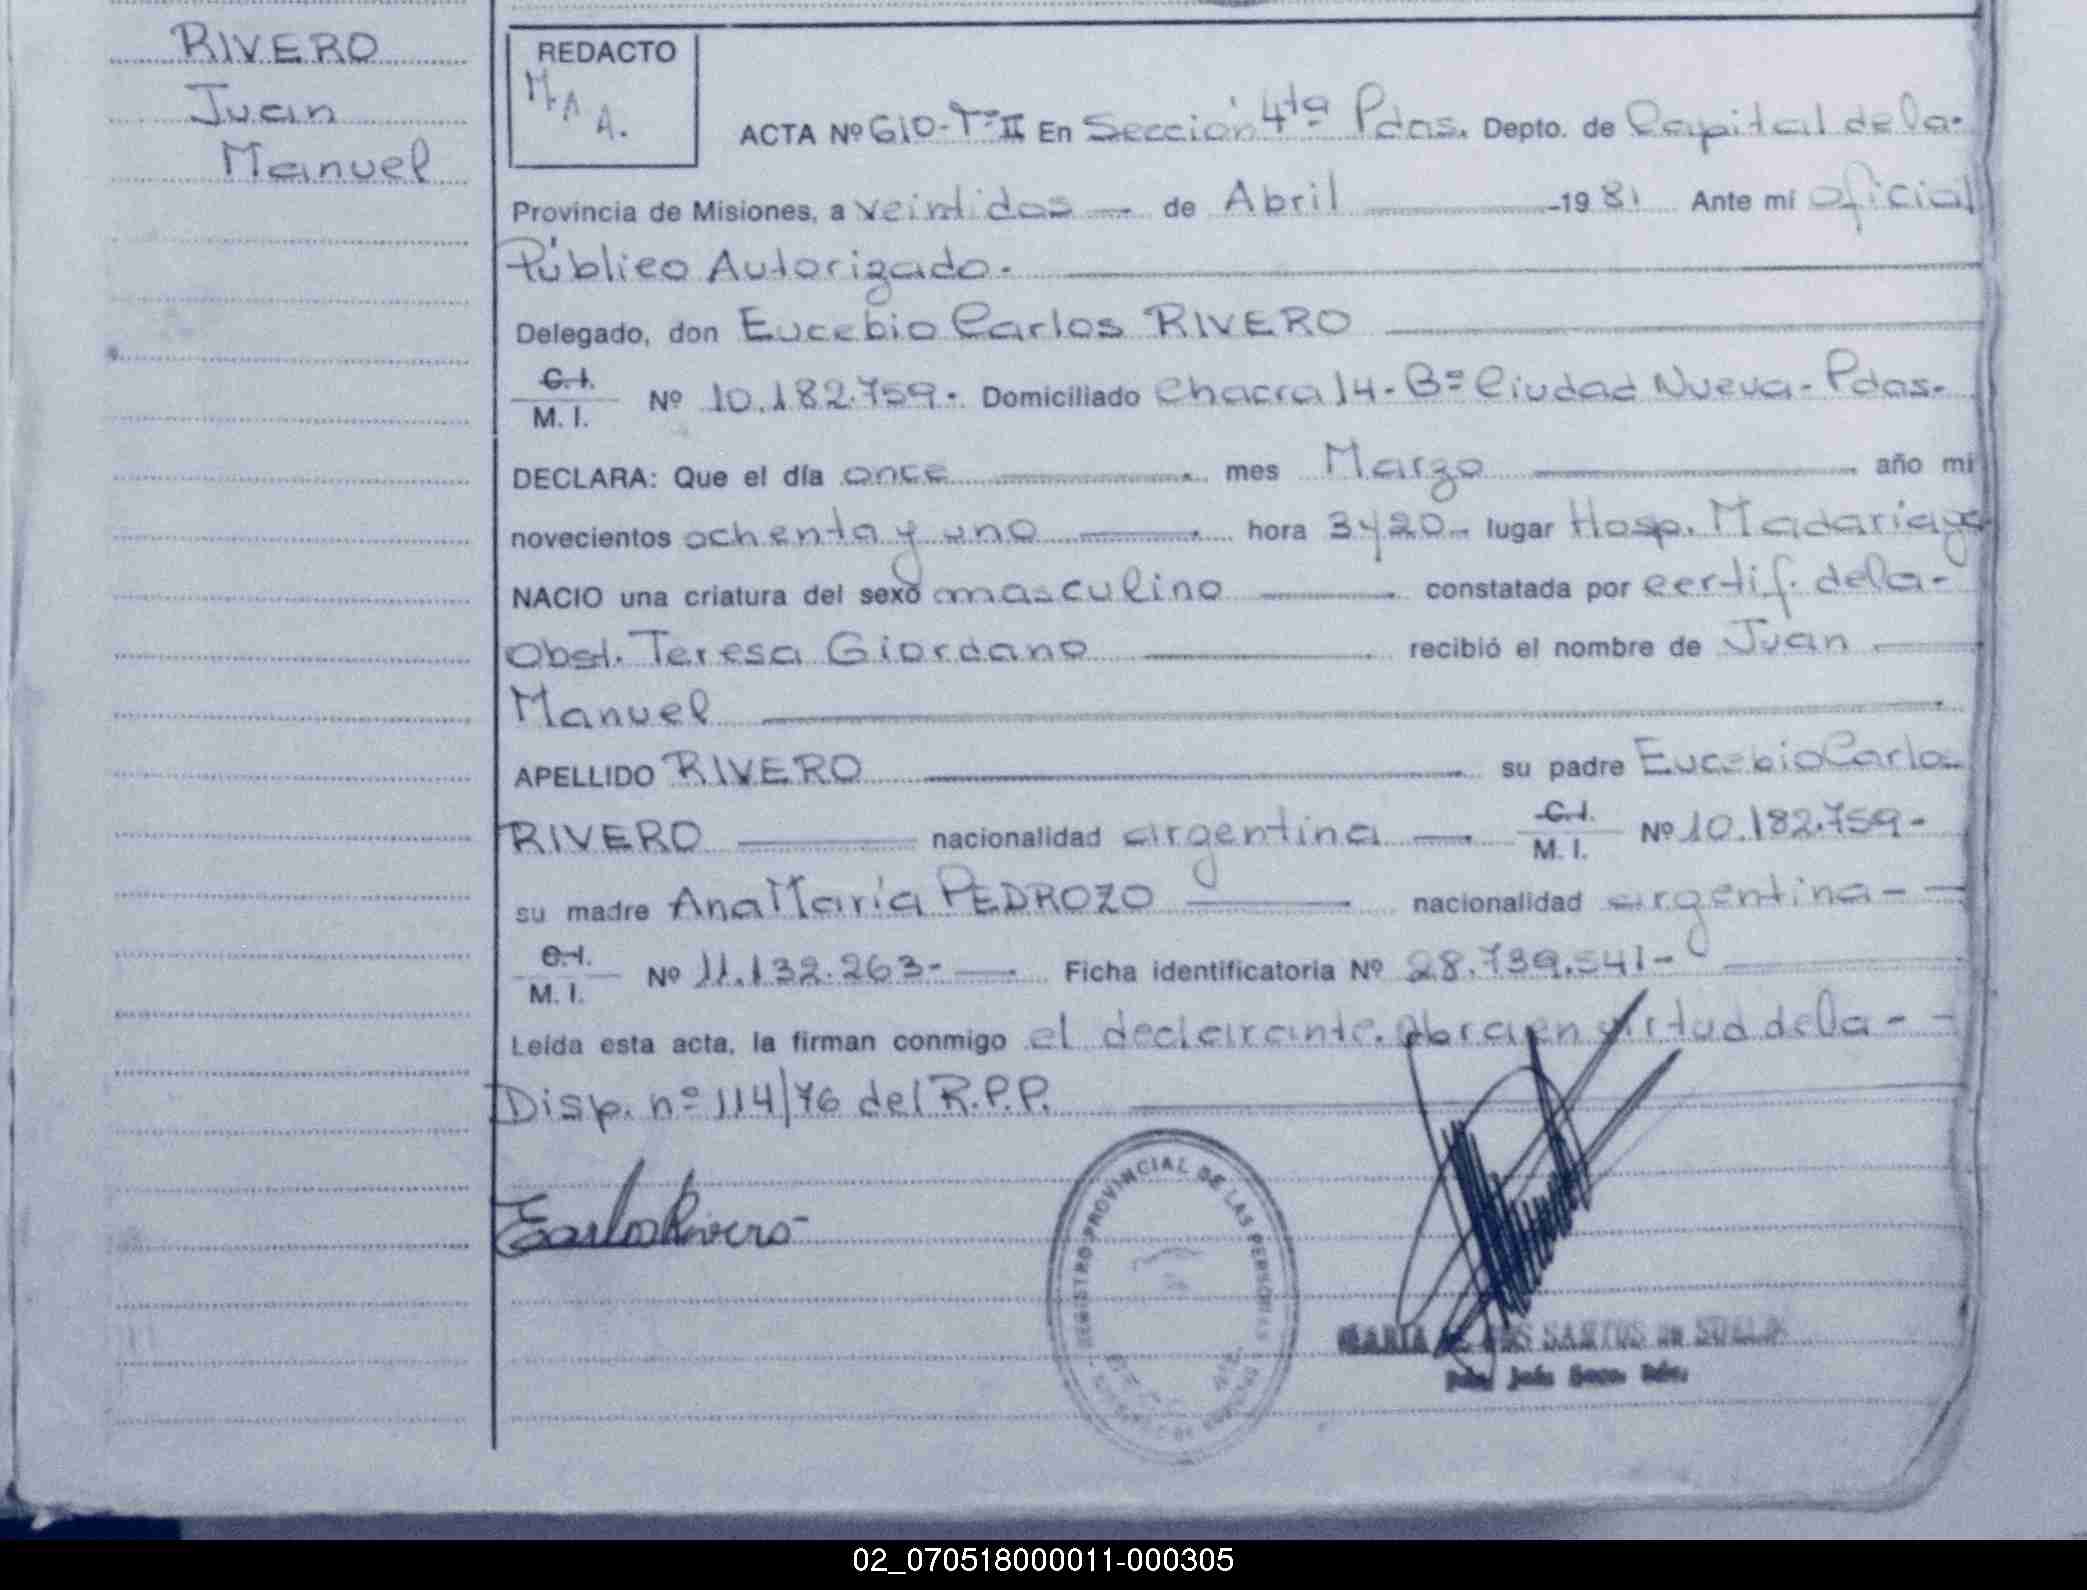 RIVERO
Juan
Manuel
REDACTO
M. A A.
ACTA Nº 610-Tº II En Sección 4ta Pdas. Depto. de Capital de la-
Provincia de Misiones, a veintidos — de Abril -19 81 Ante mí oficial
Público Autorizado.
Delegado, don Eucebio Carlos RIVERO
C.I. M. I. Nº 10.182.759- Domiciliado Chacra 14-Bº Ciudad Nueva-Pdas-
DECLARA: Que el día once mes Marzo año mi
novecientos ochenta y uno hora 3y20- lugar Hosp. Madariaga
NACIO una criatura del sexo masculino constatada por certif. de la-
Obst. Teresa Giordano recibió el nombre de Juan
Manuel
APELLIDO RIVERO su padre Eucebio Carlos
RIVERO nacionalidad argentina C.I. M. I. Nº 10.182.759-
su madre Ana María PEDROZO nacionalidad argentina- -
C.I. M. I. Nº 11.132.263- Ficha identificatoria Nº 28.739.541-
Leída esta acta, la firman conmigo el declarante. Obra en virtud de la- -
Disp. nº 114/76 del R.P.P.
ECarlos Rivero-
REGISTRO PROVINCIAL DE LAS PERSONAS
MARIA DE LOS SANTOS de
02_070518000011-000305